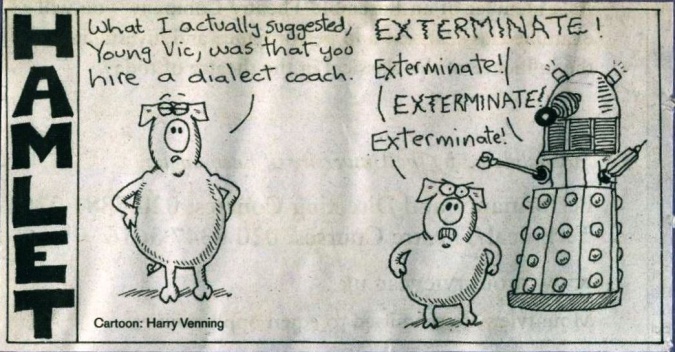 HAMLET
What I actually suggested,
Young Vic, was that you
hire a dialect coach.
EXTERMINATE!
Exterminate!
EXTERMINATE!
Exterminate!
Cartoon: Harry Venning